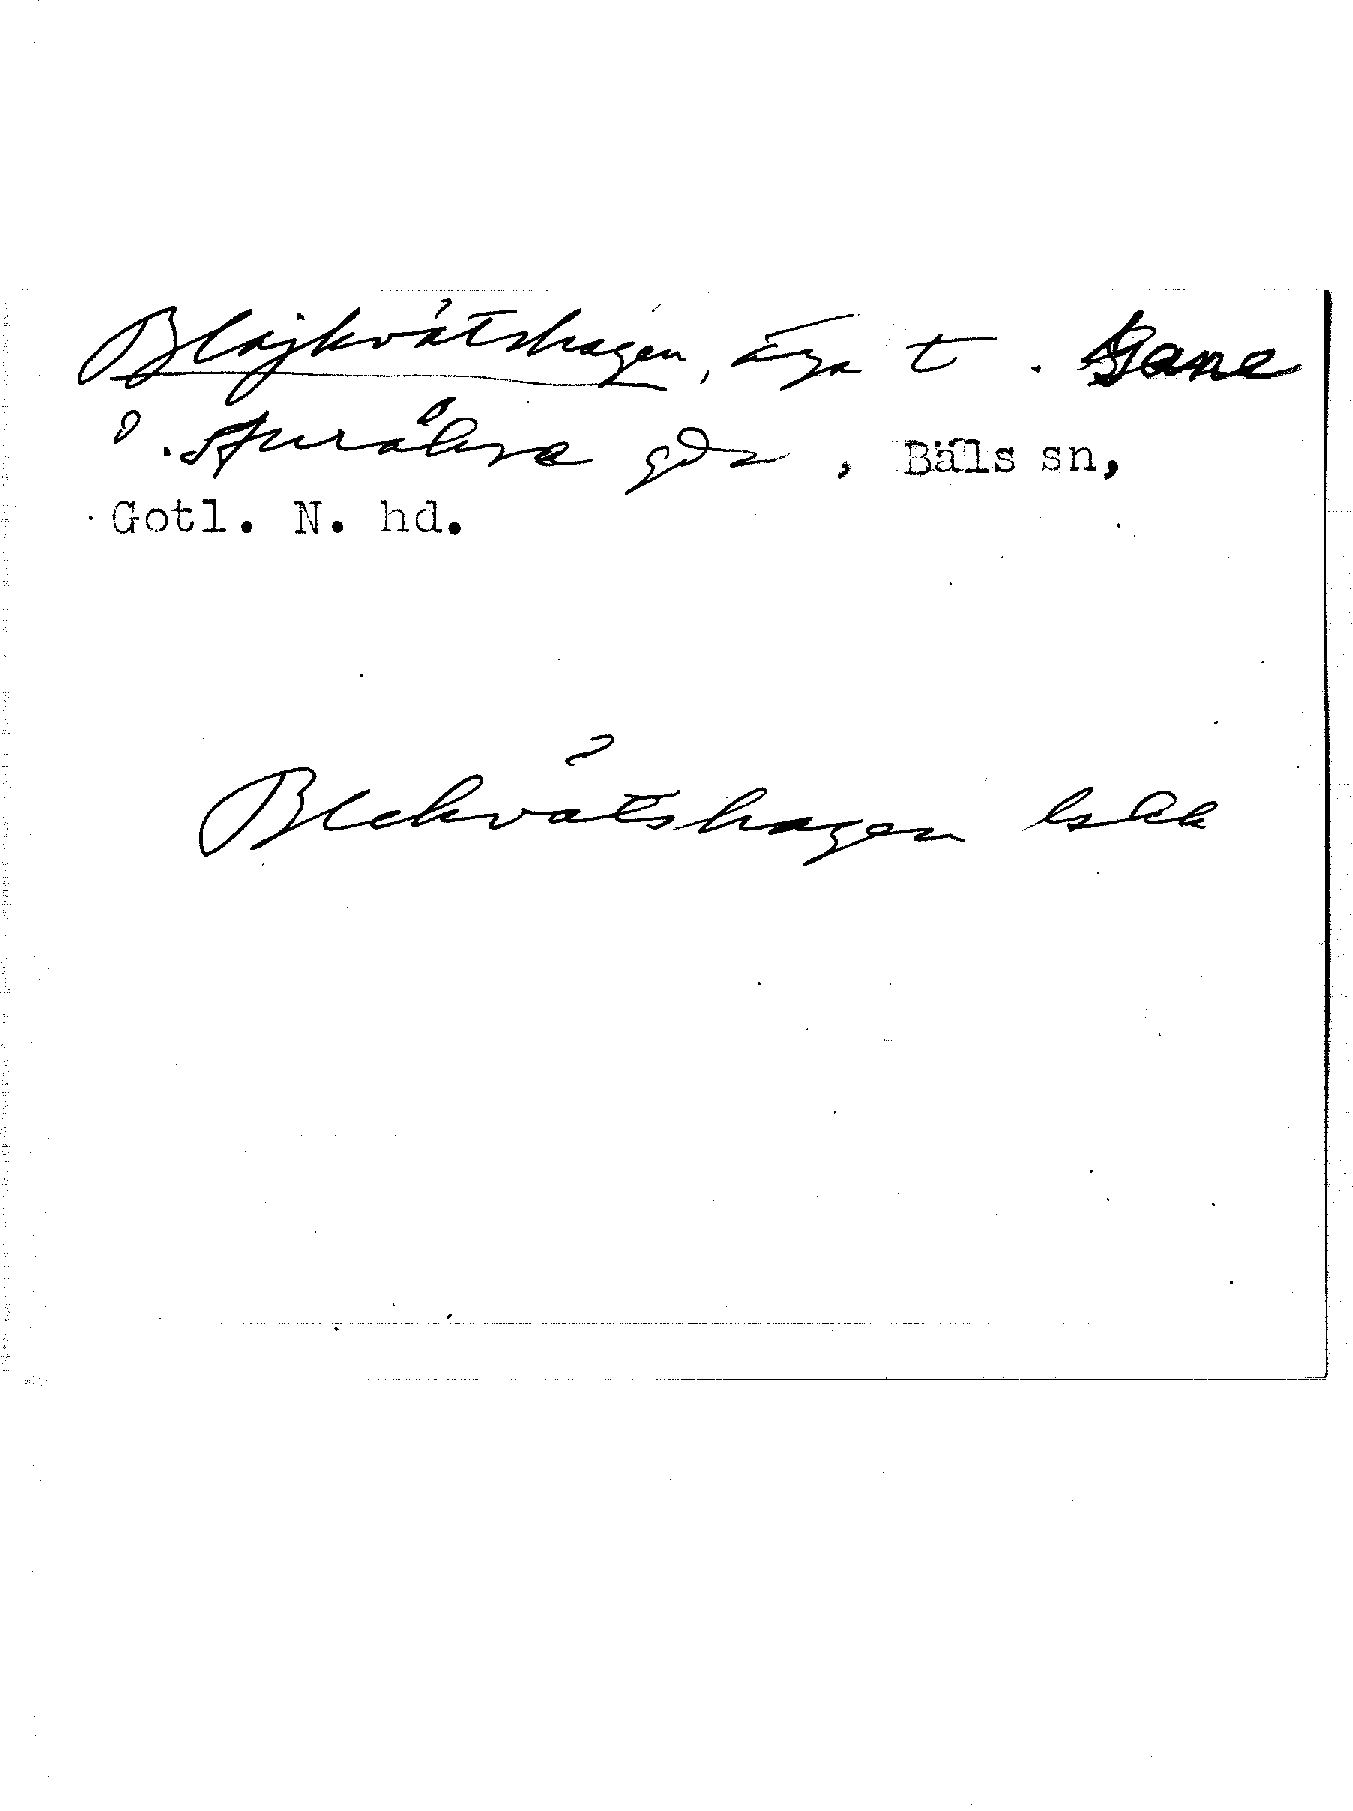 Blajkvåtshagen, äga t. Gane
o. Sturåkre gdr, Bäls sn,
Gotl. N. hd.
Blekvåtshagen lskk